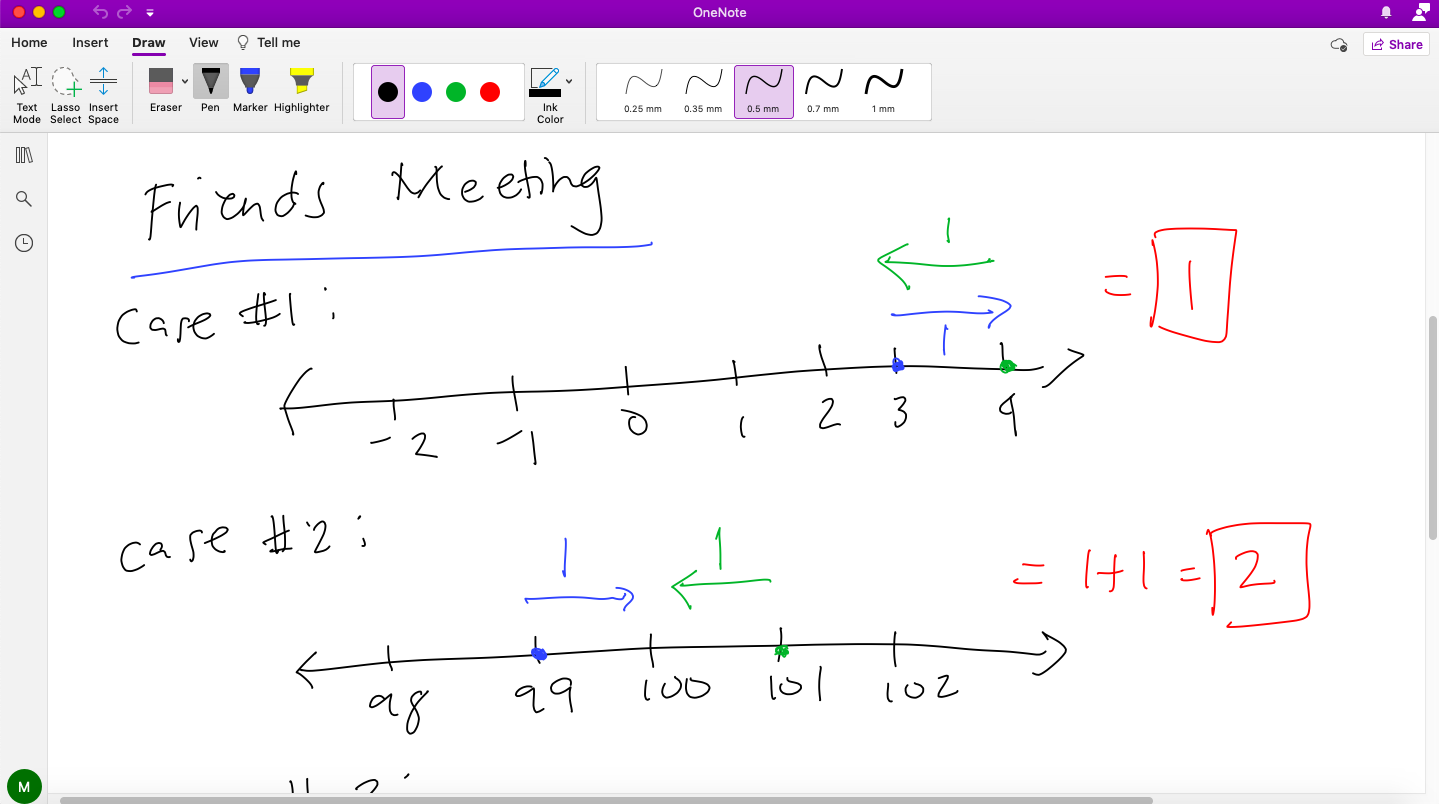 OneNote
Home Insert Draw View Tell me
Share
Text Mode
Lasso Select
Insert Space
Eraser
Pen
Marker
Highlighter
Ink Color
0.25 mm
0.35 mm
0.5 mm
0.7 mm
1 mm
Friends Meeting
1
= 1
Case #1:
1
-2 -1 0 1 2 3 4
case #2:
1 1
= 1+1 = 2
98 99 100 101 102
M